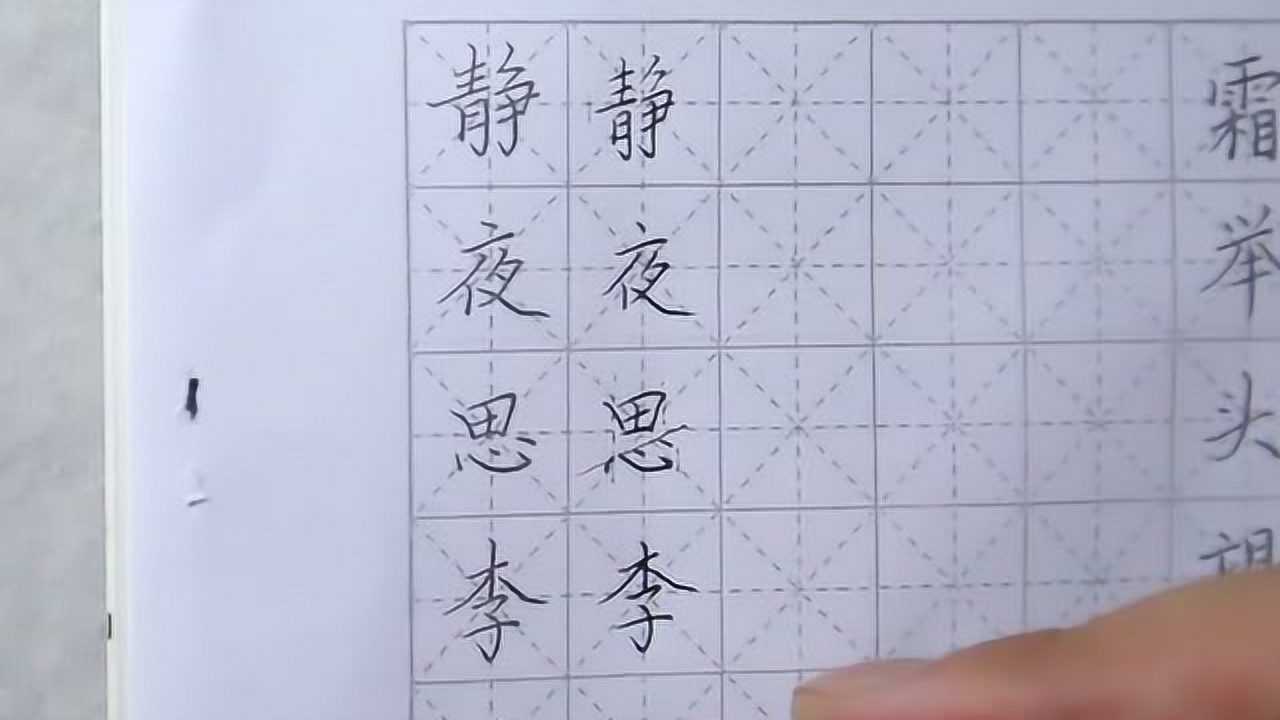 静夜思李
静夜思李
霜举头